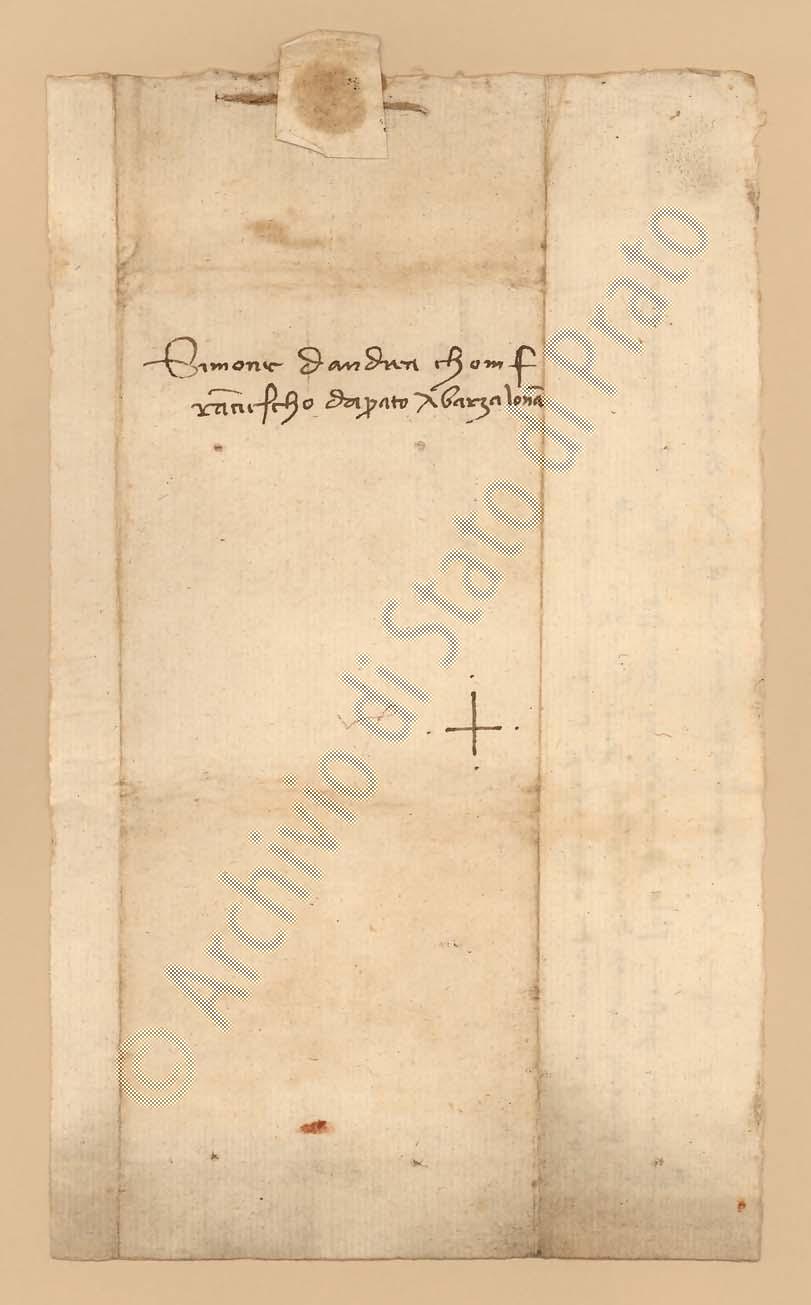 Simone dandrea chomf
rāciescho daprato ī barzalonā
© Archivio di Stato di Prato